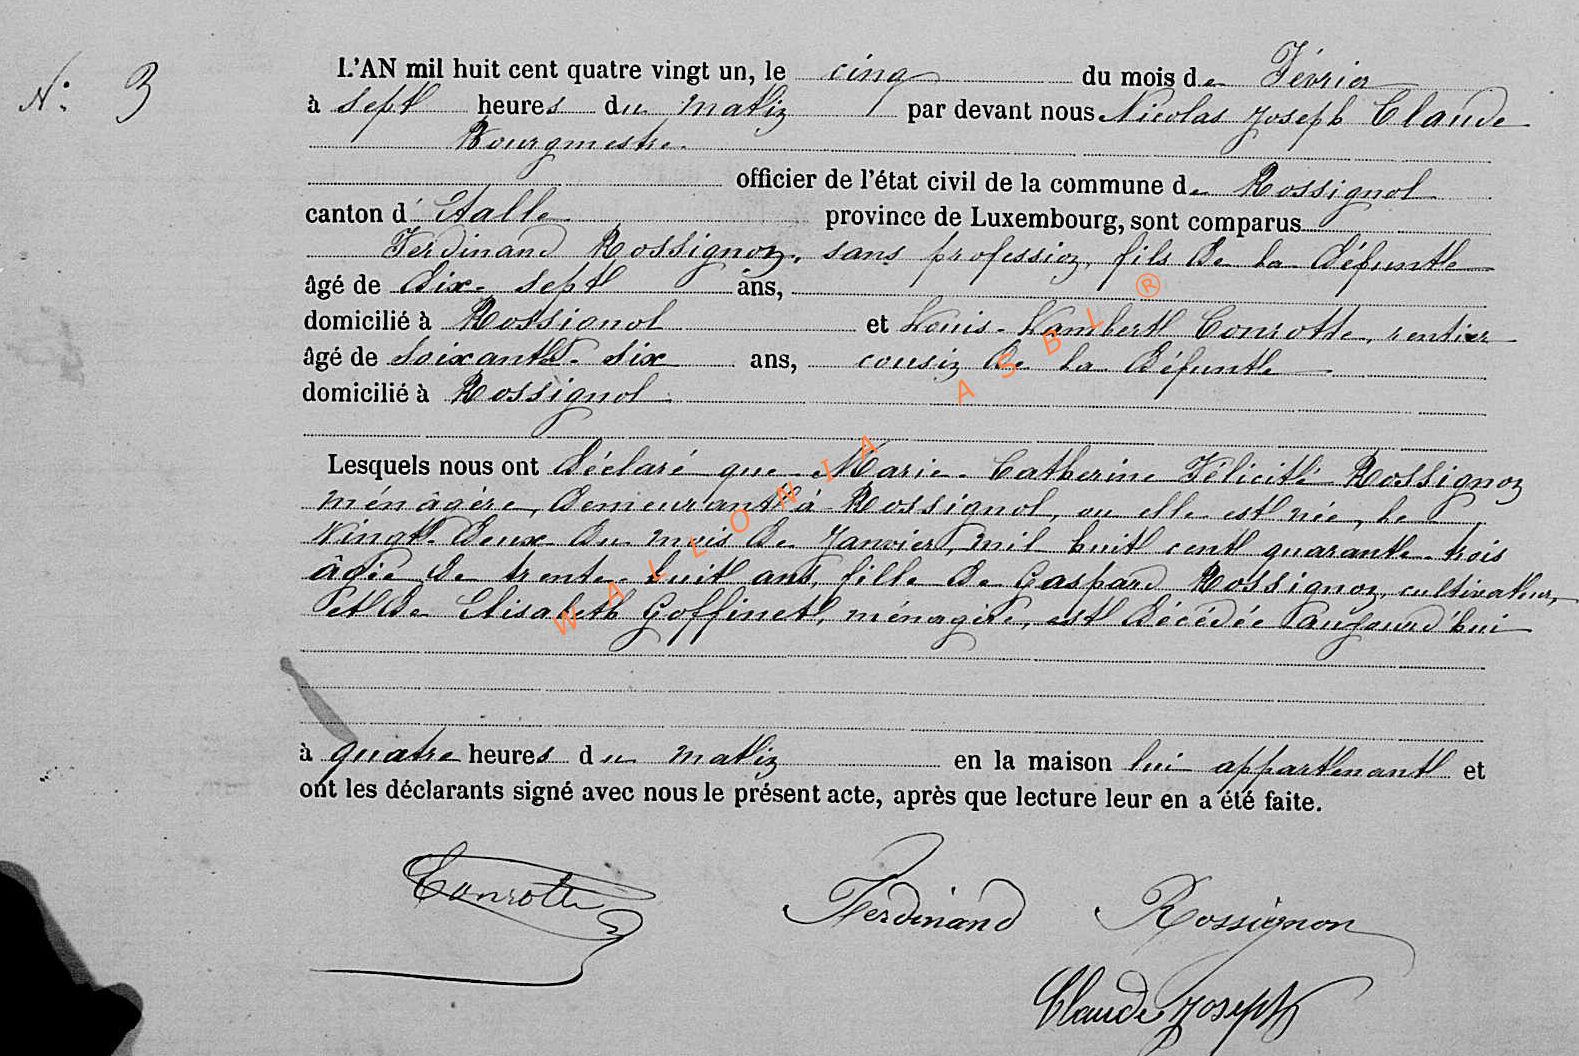 N° 3
L'AN mil huit cent quatre vingt un, le cinq du mois de Février
à sept heures du matin par devant nous Nicolas Joseph Claude
Bourgmestre.
officier de l'état civil de la commune de Rossignol
canton d'Etalle province de Luxembourg, sont comparus
Ferdinand Rossignon, sans profession, fils de la défunte
âgé de dix-sept ans,
domicilié à Rossignol et Louis-Lambert Conrotte, rentier
âgé de soixante-six ans, cousin de la défunte
domicilié à Rossignol.
Lesquels nous ont déclaré que Marie-Catherine Félicité Rossignon
ménagère, demeurant à Rossignol, ou elle est née, le
vingt-deux du mois de Janvier, mil huit cent quarante-trois
âgée de trente-huit ans, fille de Gaspard Rossignon, cultivateur,
et de Elisabeth Goffinet, ménagère, est décédée aujourd'hui
à quatre heures du matin en la maison lui appartenant et
ont les déclarants signé avec nous le présent acte, après que lecture leur en a été faite.
Conrotte Ferdinand Rossignon
Claude Joseph
WALLONIA ASBL ®